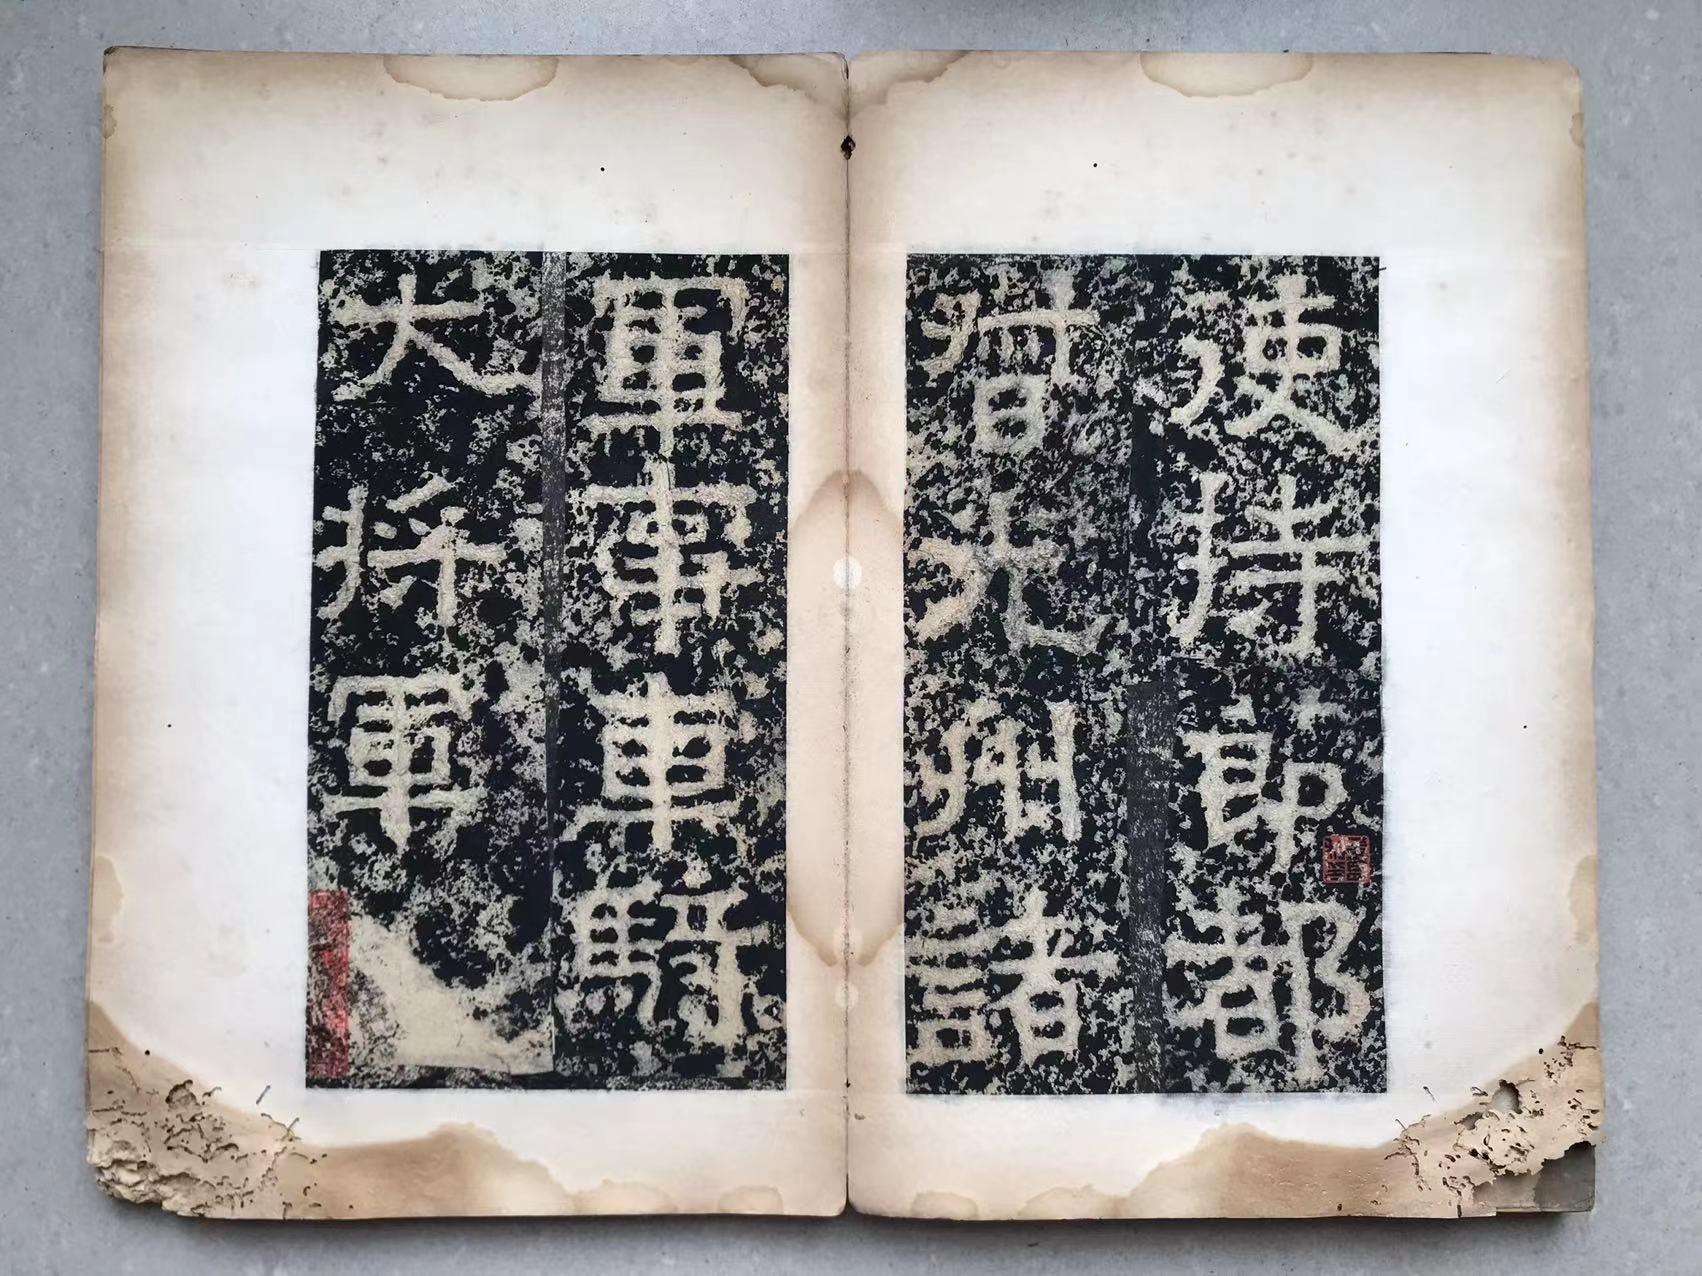 使持節都
督光州諸
軍事車騎
大將軍